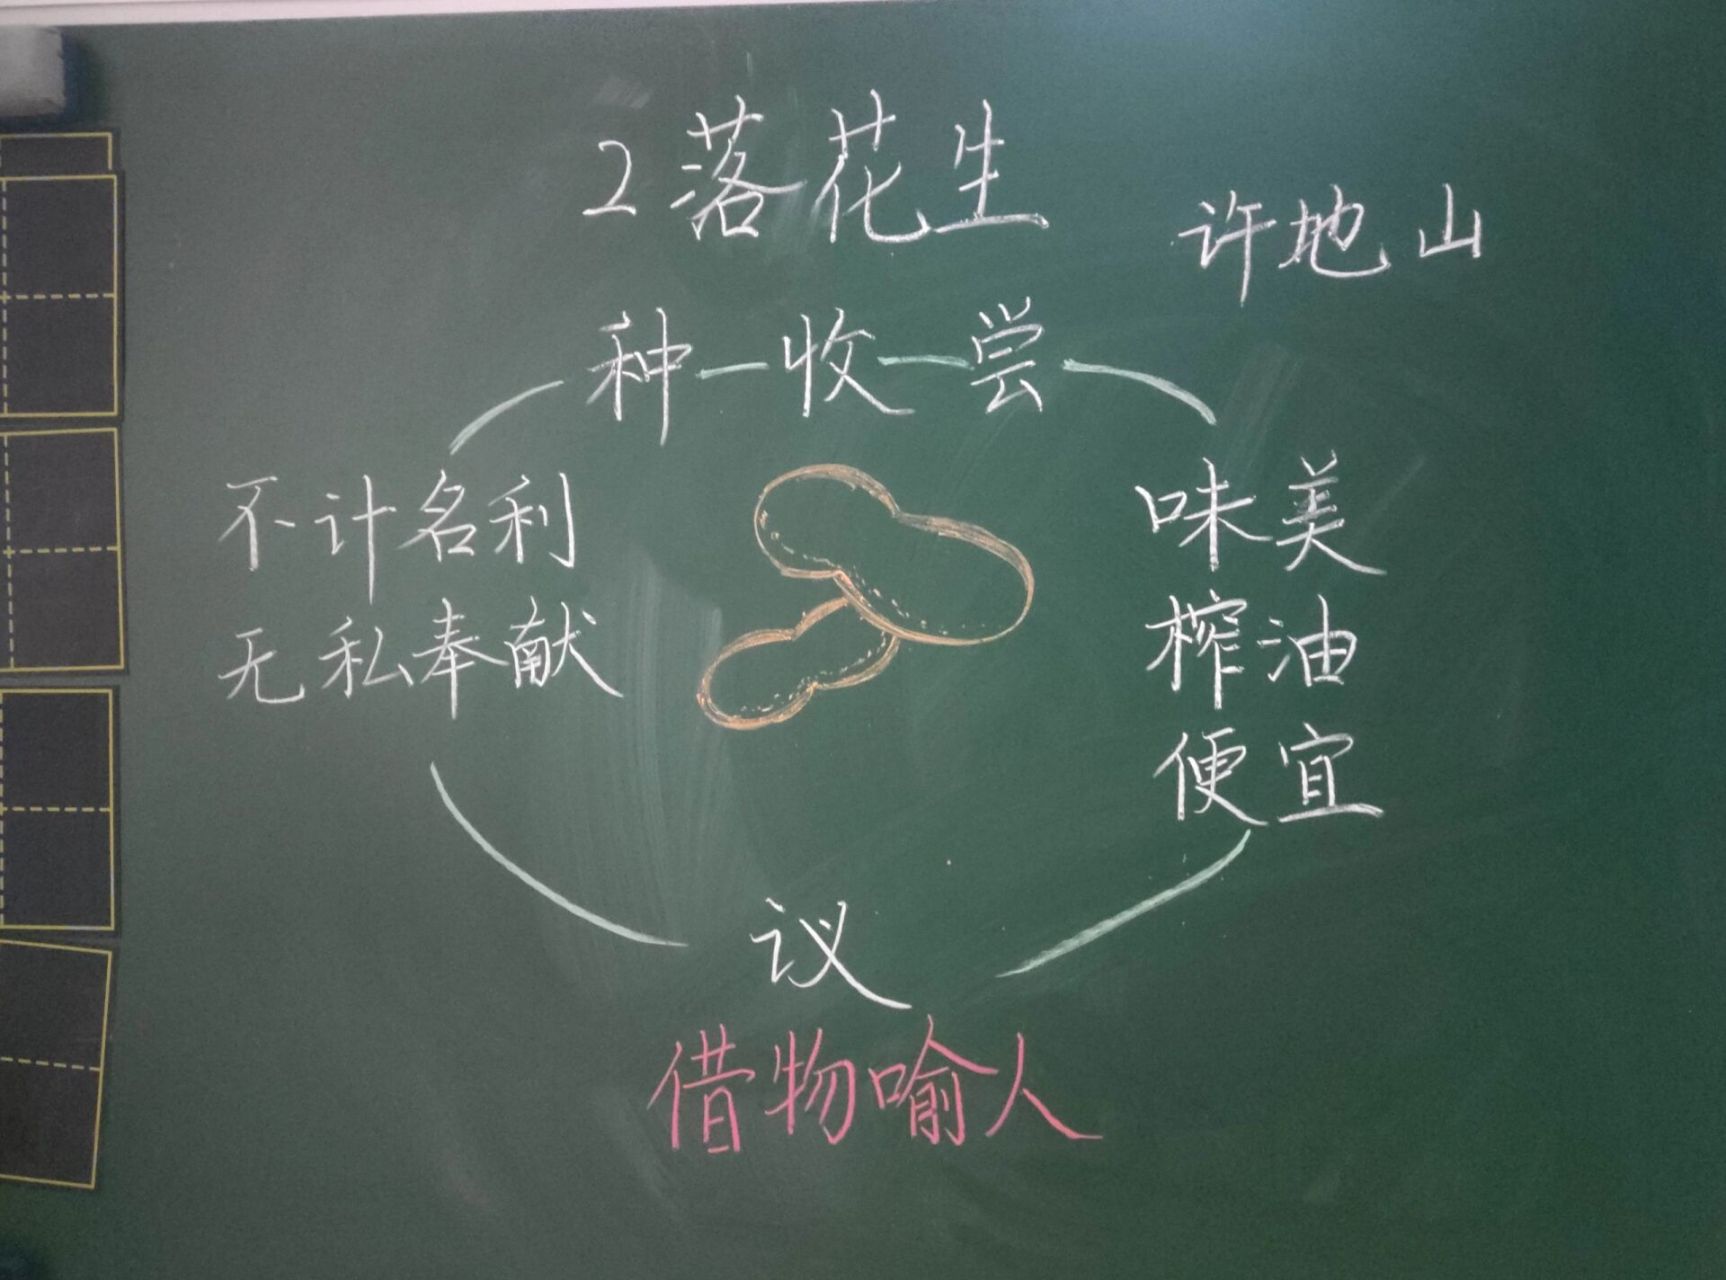 2落花生
许地山
种—收—尝
不计名利
无私奉献
味美
榨油
便宜
议
借物喻人